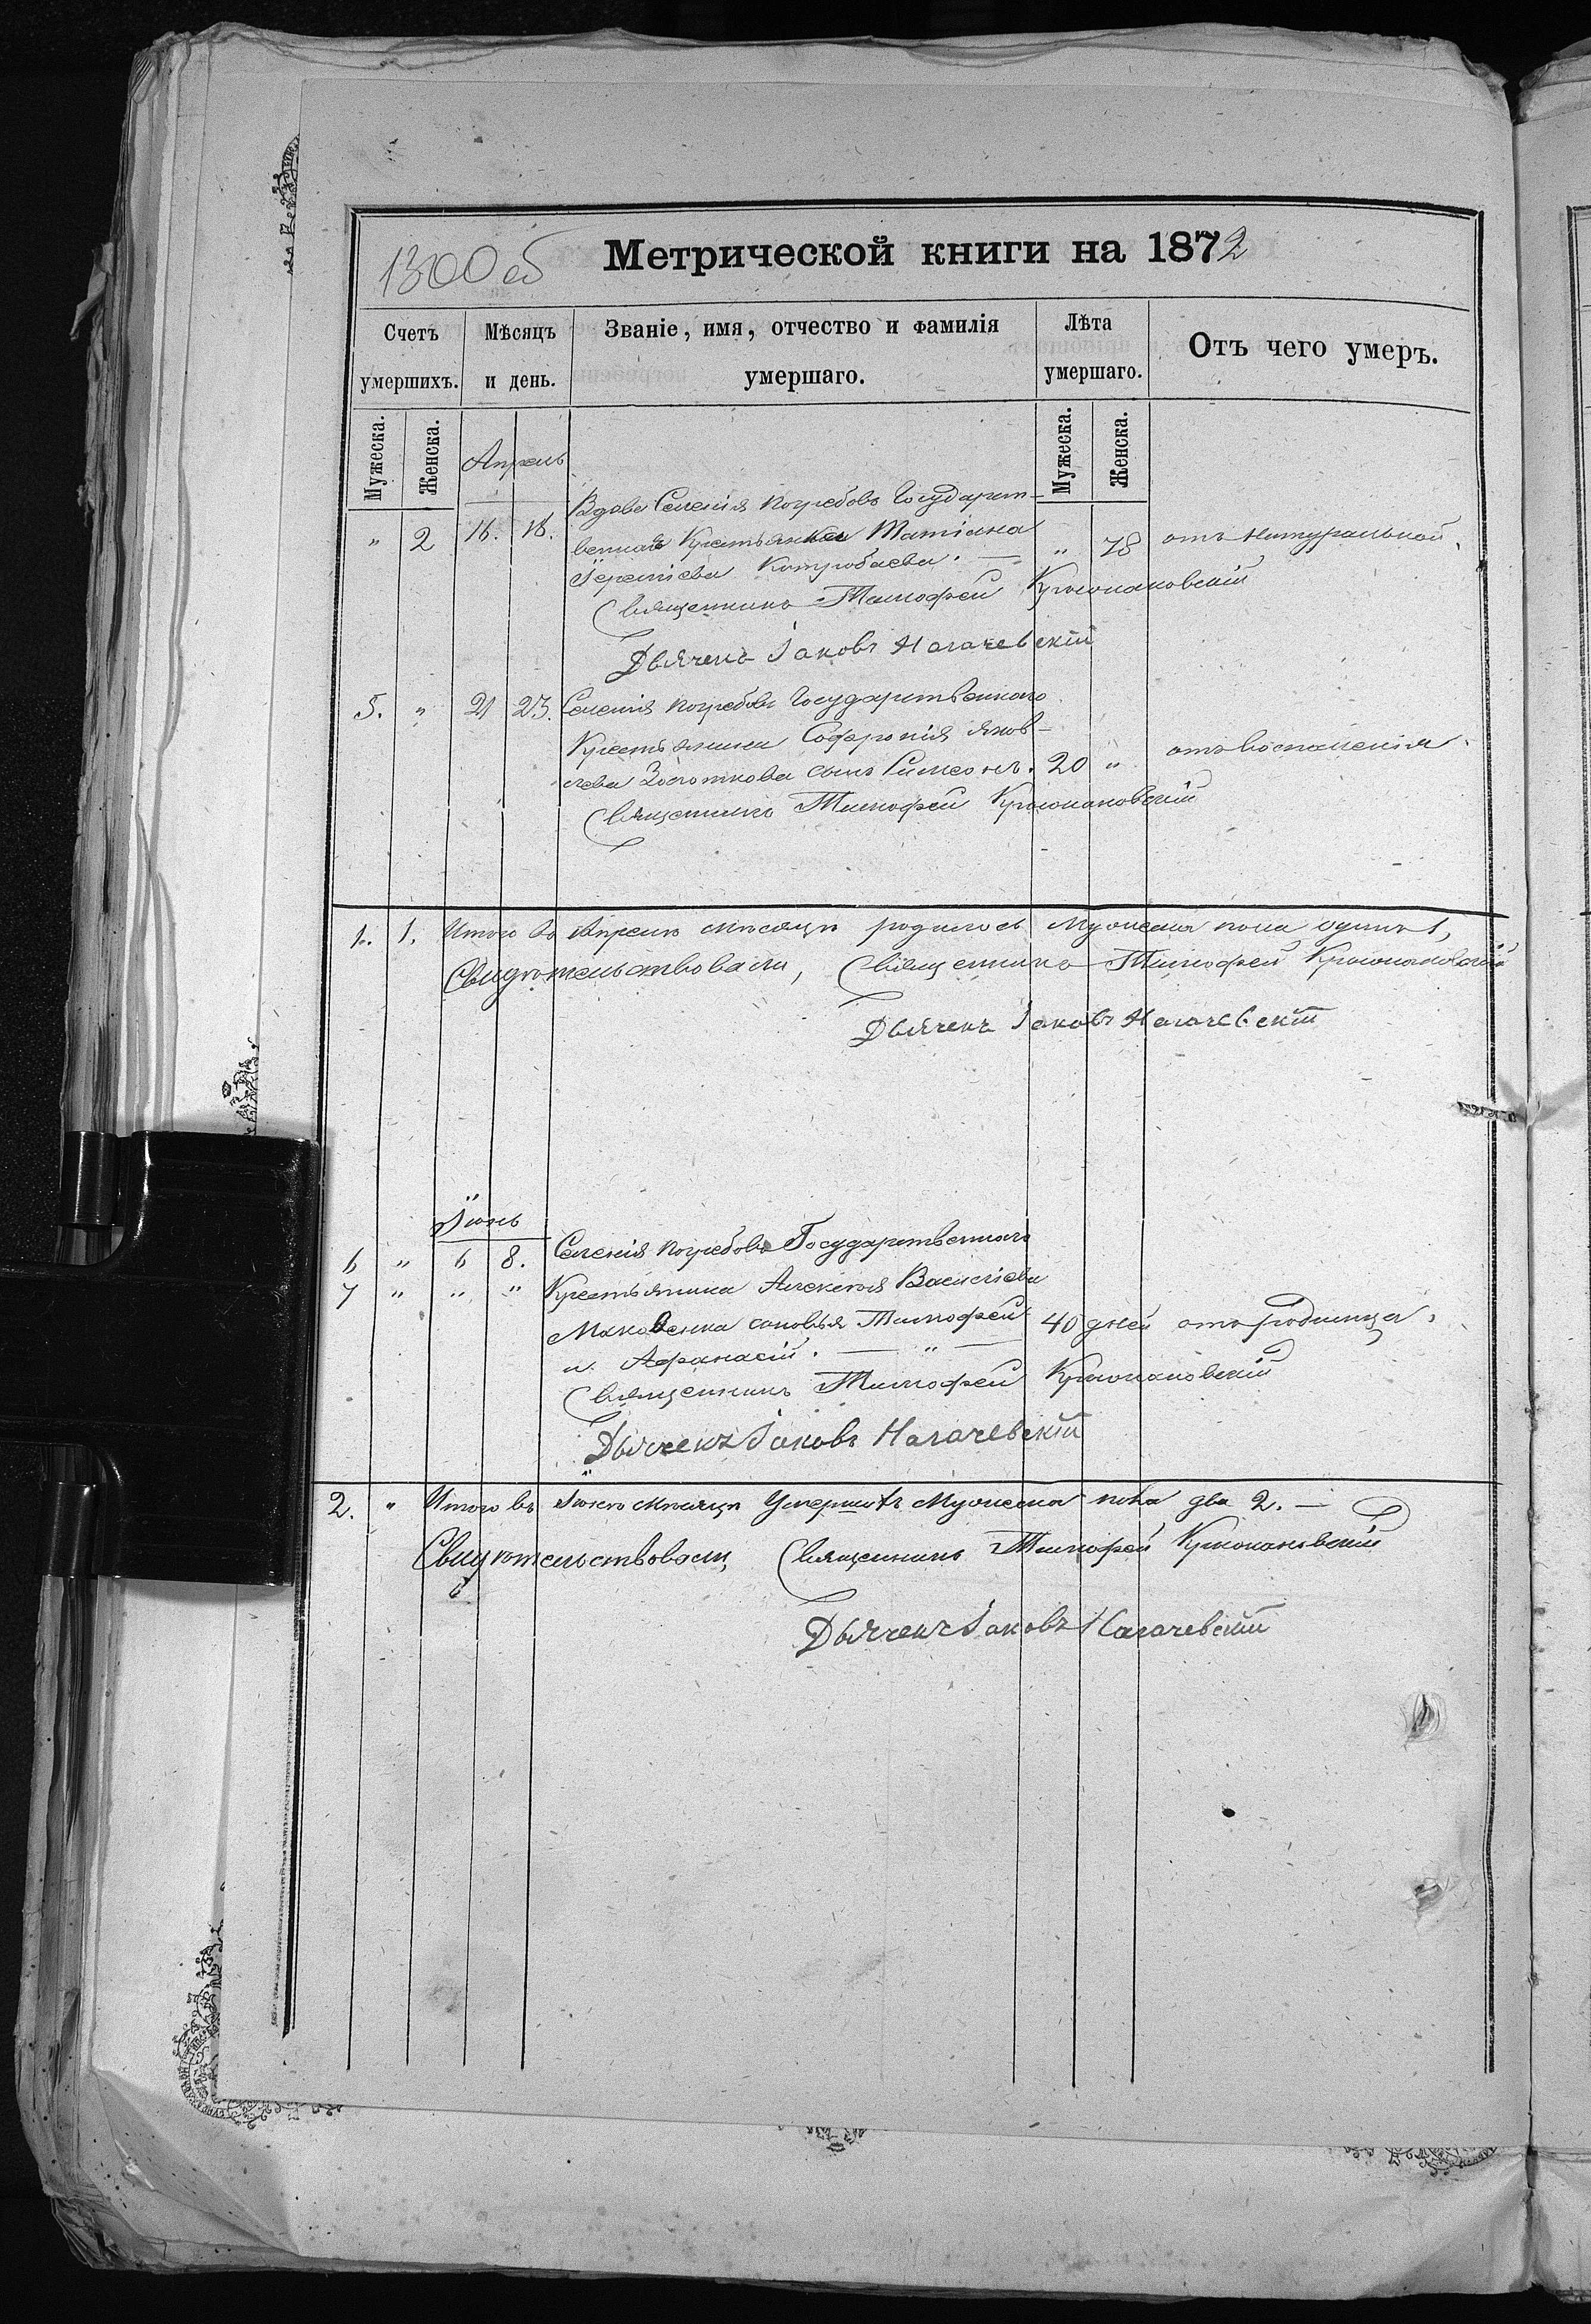 1300 об
Метрической книги на 1872
Счетъ умершихъ.
Мѣсяцъ и день.
Званіе, имя, отчество и фамилія умершаго.
Лѣта умершаго.
Отъ чего умеръ.
Мужеска. Женска.
Мужеска. Женска.
Апрель
Вдова Селенія Погребовъ Государст-
" 2 16. 18. венная Крестьянка Татіана " 78 отъ натуральной.
Іереміева
Священникъ Тимофей Крыжановскій
Дьячекъ Іаковъ Нагачевскій
5. " 21 23. Селенія Погребовъ Государственнаго
Крестьянина Софронія Яков-
лева Золоткова сынъ Симеонъ. 20 " отъ воспаленія.
Священникъ Тимофей Крыжановскій
1. 1. Итого въ Апреле месяце родилось Мужеска пола одинъ 1,
Свидѣтельствовали, Священникъ Тимофей Крыжановскій
Дьячекъ Іаковъ Нагачевскій
Іюнь
6 " 6 8. Селенія Погребовъ Государственнаго
7 " " " Крестьянина Алексея Василіева
Маковенка сыновья Тимофей 40 дней отъ родимца.
и Афанасій. — " —
Священникъ Тимофей Крыжановскій
Дьячекъ Іаковъ Нагачевскій
2. " Итого въ Іюне месяце Умершихъ Мужеска пола два 2. —
Свидѣтельствовали, Священникъ Тимофей Крыжановскій
Дьячекъ Іаковъ Нагачевскій